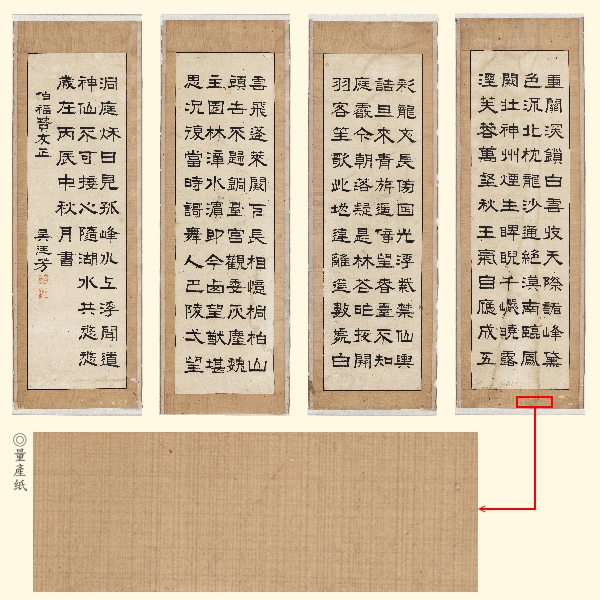 重關深鎖白雲收天際諸峰黛
色流北枕龍沙通絕漠南臨鳳
闕壯神州煙生睥睨千巖曉露
溼芙蓉萬壑秋王氣自應成五
彩龍文長傍国光浮紫禁仙輿
詰旦來青旂遥倚望春臺不知
庭霰今朝落疑是林花昨夜開
羽客笙歌此地違離筵數處白
雲飛蓬萊闕下長相憶桐柏山
頭去不歸銅臺宮觀委灰塵魏
主園林漳水濱即今西望猷堪
思況復當時謌舞人巴陵弌望
洞庭秌日見孤峰水上浮聞道
神仙不可接心隨湖水共悠悠
歲在丙辰中秋月書
伯福賢友正
吴廷芳
◎量產紙